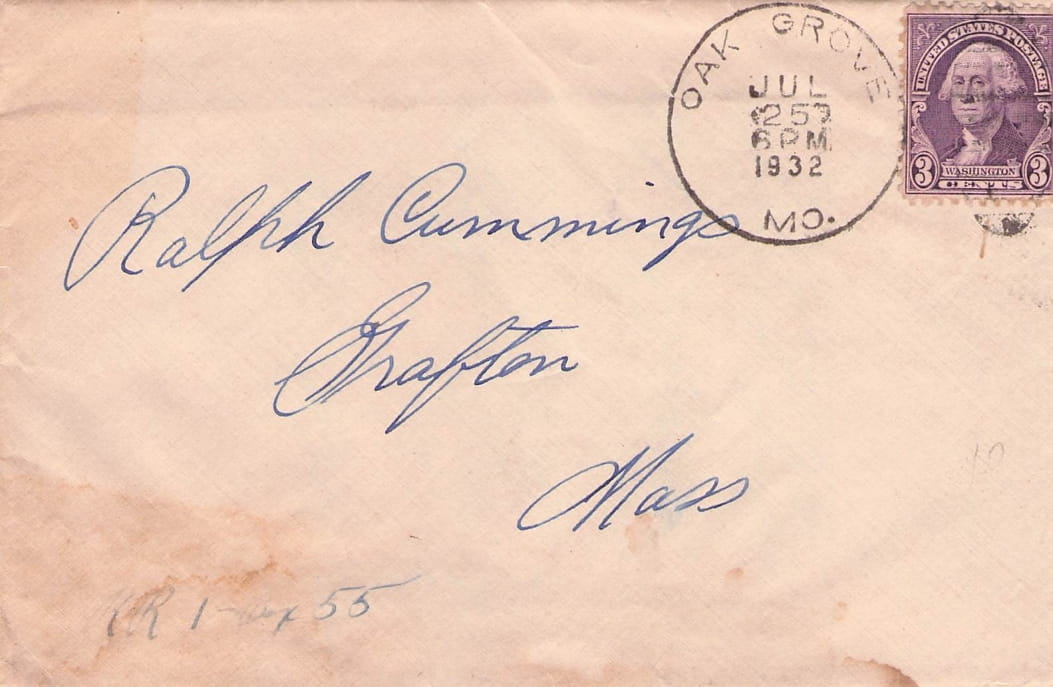 OAK GROVE
JUL
25
6 PM
1932
MO.
UNITED STATES POSTAGE
3 WASHINGTON 3
CENTS
Ralph Cummings
Grafton
Mass
RR 1- Box 55